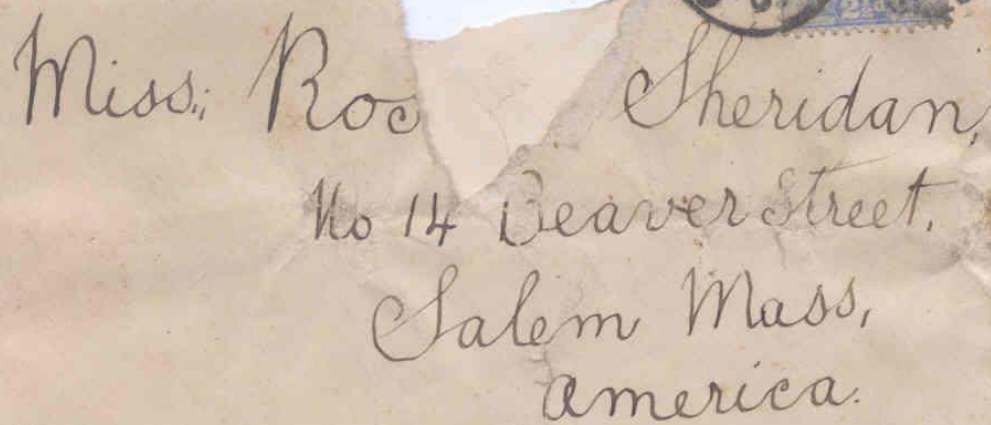 Miss, Ros Sheridan,
No 14 Beaver Street.
Salem Mass,
America.